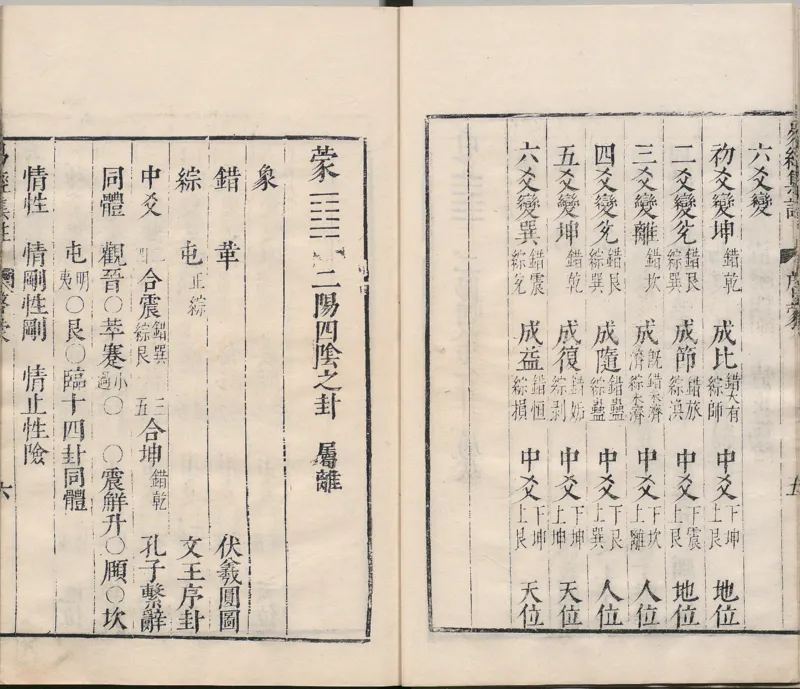 六爻變
初爻變坤 錯乾 成比 錯大有 綜師 中爻 下坤 上艮 地位
二爻變兌 錯艮 綜巽 成節 錯旅 綜渙 中爻 下震 上艮 地位
三爻變離 錯坎 成既濟 錯未濟 綜未濟 中爻 下坎 上離 人位
四爻變兌 錯艮 綜巽 成隨 錯蠱 綜蠱 中爻 下艮 上巽 人位
五爻變坤 錯乾 成復 錯姤 綜剝 中爻 下坤 上坤 天位
六爻變巽 錯震 綜兌 成益 錯恒 綜損 中爻 下坤 上艮 天位
蒙 二陽四陰之卦 屬離
象
錯 革 伏羲圓圖
綜 屯 正綜 文王序卦
中爻 二四 合震 錯巽 綜艮 三五 合坤 錯乾 孔子繫辭
同體 觀晉○萃蹇小過○ ○震解升○頤○坎
屯明夷○艮○臨十四卦同體
情性 情剛性剛 情止性險
六